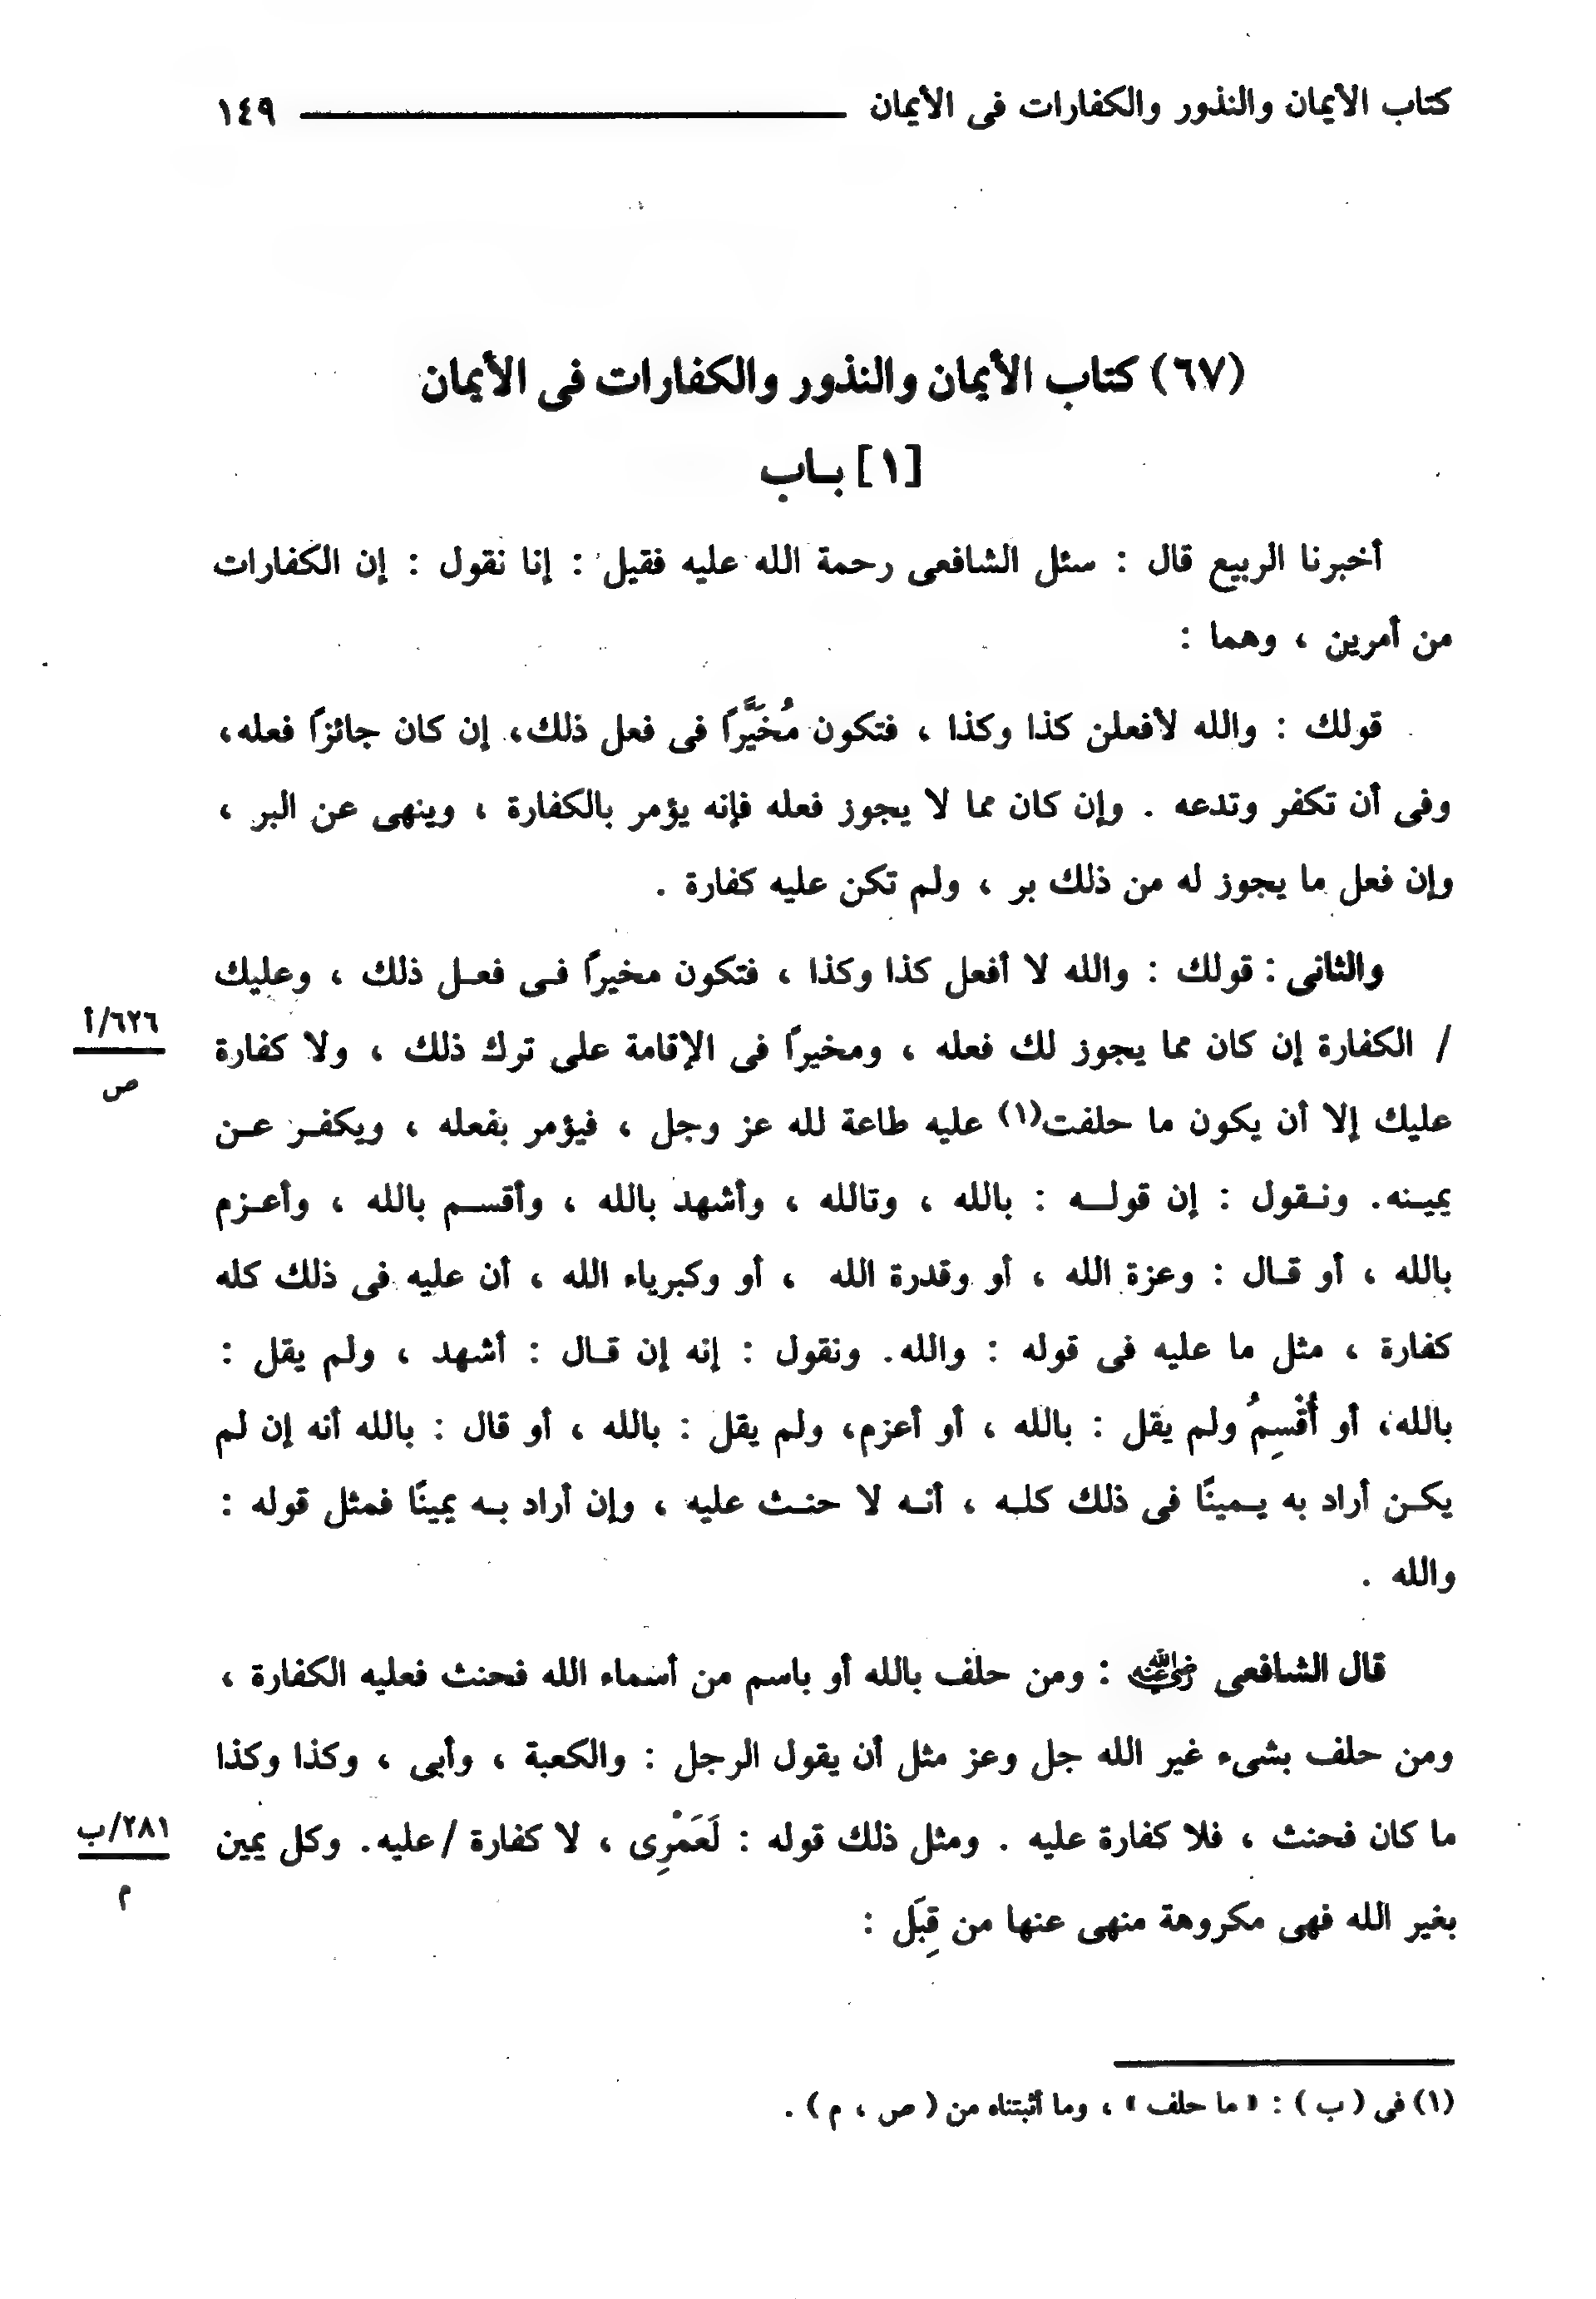 كتاب الأيمان والنذور والكفارات فى الأيمان ١٤٩
(٦٧) كتاب الأيمان والنذور والكفارات فى الأيمان
[١] بـاب
أخبرنا الربيع قال : سئل الشافعى رحمة الله عليه فقيل : إنا نقول : إن الكفارات
من أمرين ، وهما :
قولك : والله لأفعلن كذا وكذا ، فتكون مُخَيَّرًا فى فعل ذلك، إن كان جائزًا فعله،
وفى أن تكفر وتدعه . وإن كان مما لا يجوز فعله فإنه يؤمر بالكفارة ، وينهى عن البر ،
وإن فعل ما يجوز له من ذلك بر ، ولم تكن عليه كفارة .
والثانى : قولك : والله لا أفعل كذا وكذا ، فتكون مخيرًا فـى فعـل ذلك ، وعليك
/ الكفارة إن كان مما يجوز لك فعله ، ومخيرًا فى الإقامة على ترك ذلك ، ولا كفارة
٦٢٦/أ
ص
عليك إلا أن يكون ما حلفت(١) عليه طاعة لله عز وجل ، فيؤمر بفعله ، ويكفـر عـن
يميـنه. ونـقول : إن قولــه : بالله ، وتالله ، وأشهد بالله ، وأقسـم بالله ، وأعـزم
بالله ، أو قـال : وعزة الله ، أو وقدرة الله ، أو وكبرياء الله ، أن عليه فى ذلك كله
كفارة ، مثل ما عليه فى قوله : والله. ونقول : إنه إن قـال : أشهد ، ولم يقل :
بالله، أو أُقْسِمُ ولم يقل : بالله ، أو أعزم، ولم يقل : بالله ، أو قال : بالله أنه إن لم
يكـن أراد به يـمينًا فى ذلك كلـه ، أنـه لا حنـث عليه ، وإن أراد بـه يمينًا فمثل قوله :
والله .
قال الشافعى رضي الله عنه : ومن حلف بالله أو باسم من أسماء الله فحنث فعليه الكفارة ،
ومن حلف بشىء غير الله جل وعز مثل أن يقول الرجل : والكعبة ، وأبى ، وكذا وكذا
ما كان فحنث ، فلا كفارة عليه . ومثل ذلك قوله : لَعَمْرِى ، لا كفارة / عليه. وكل يمين
٢٨١/ب
م
بغير الله فهى مكروهة منهى عنها من قِبَل :
(١) فى ( ب ) : « ما حلف » ، وما أثبتناه من ( ص ، م ) .